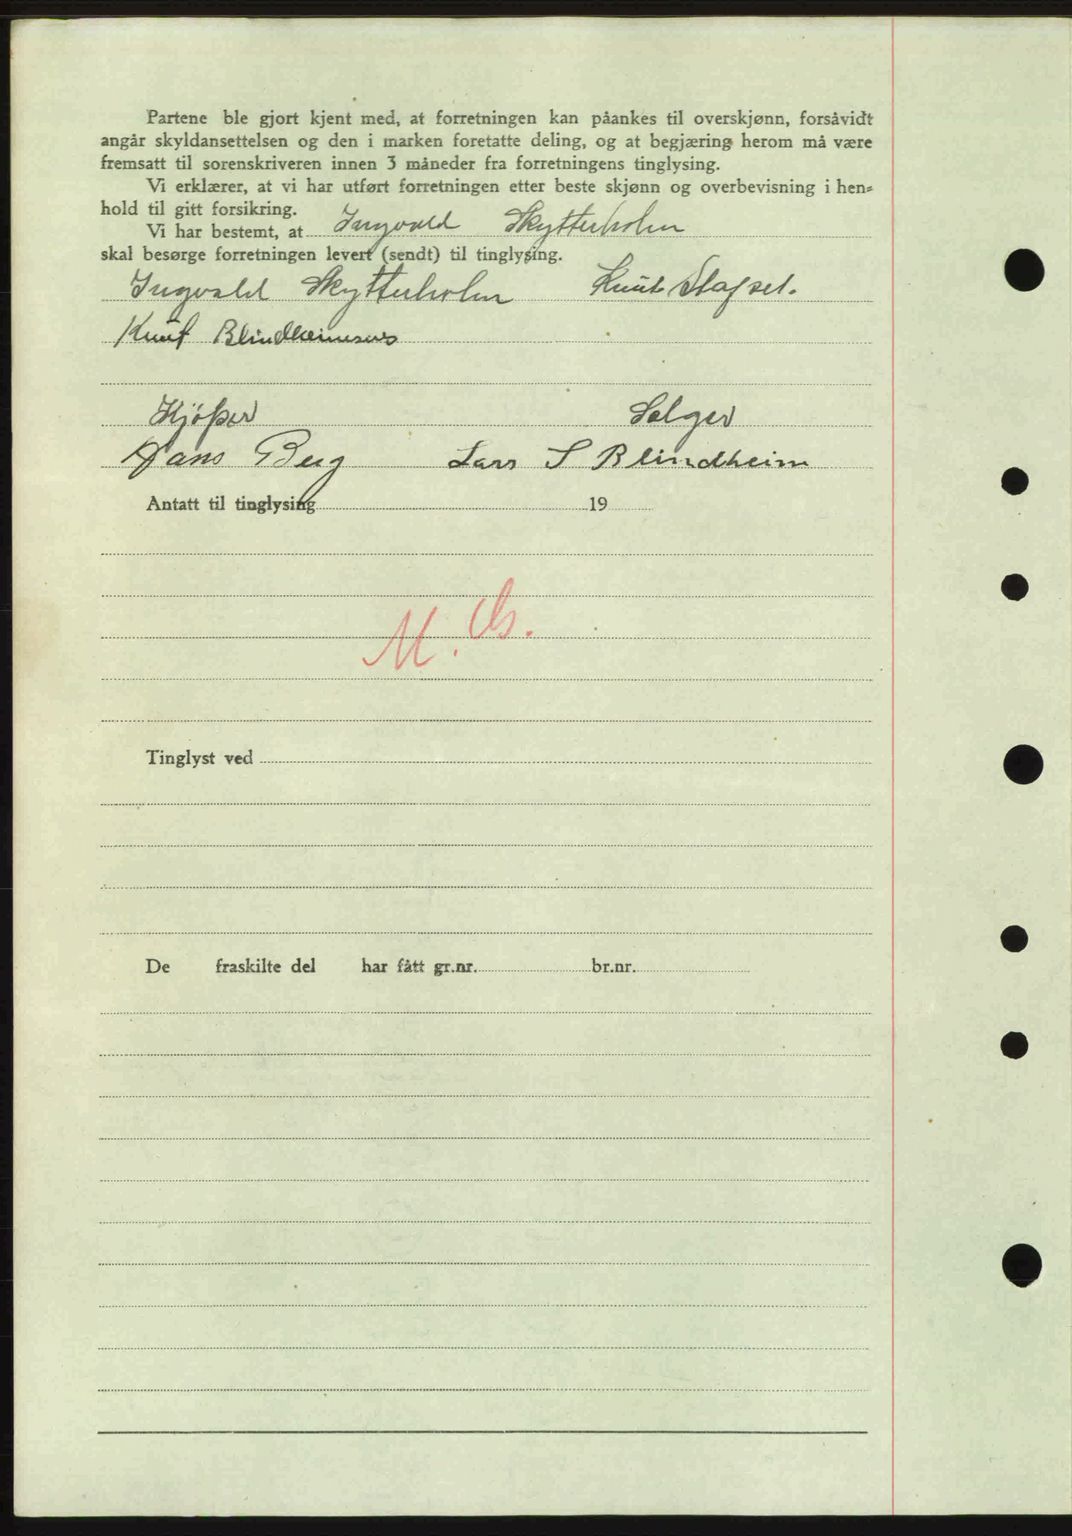 Partene ble gjort kjent med, at forretningen kan påankes til overskjønn, forsåvidt
angår skyldansettelsen og den i marken foretatte deling, og at begjæring herom må være
fremsatt til sorenskriveren innen 3 måneder fra forretningens tinglysing.
Vi erklærer, at vi har utført forretningen etter beste skjønn og overbevisning i hen=
hold til gitt forsikring.
Vi har bestemt, at Ingvald Skytterholm
skal besørge forretningen levert (sendt) til tinglysing.
Ingvald Skytterholm Knut Slafsel.
Knut Blindheimsnes
Kjöper Selger
Hans Berg Lars S Blindheim
Antatt til tinglysing 19
M.
Tinglyst ved
De fraskilte del har fått gr.nr. br.nr.